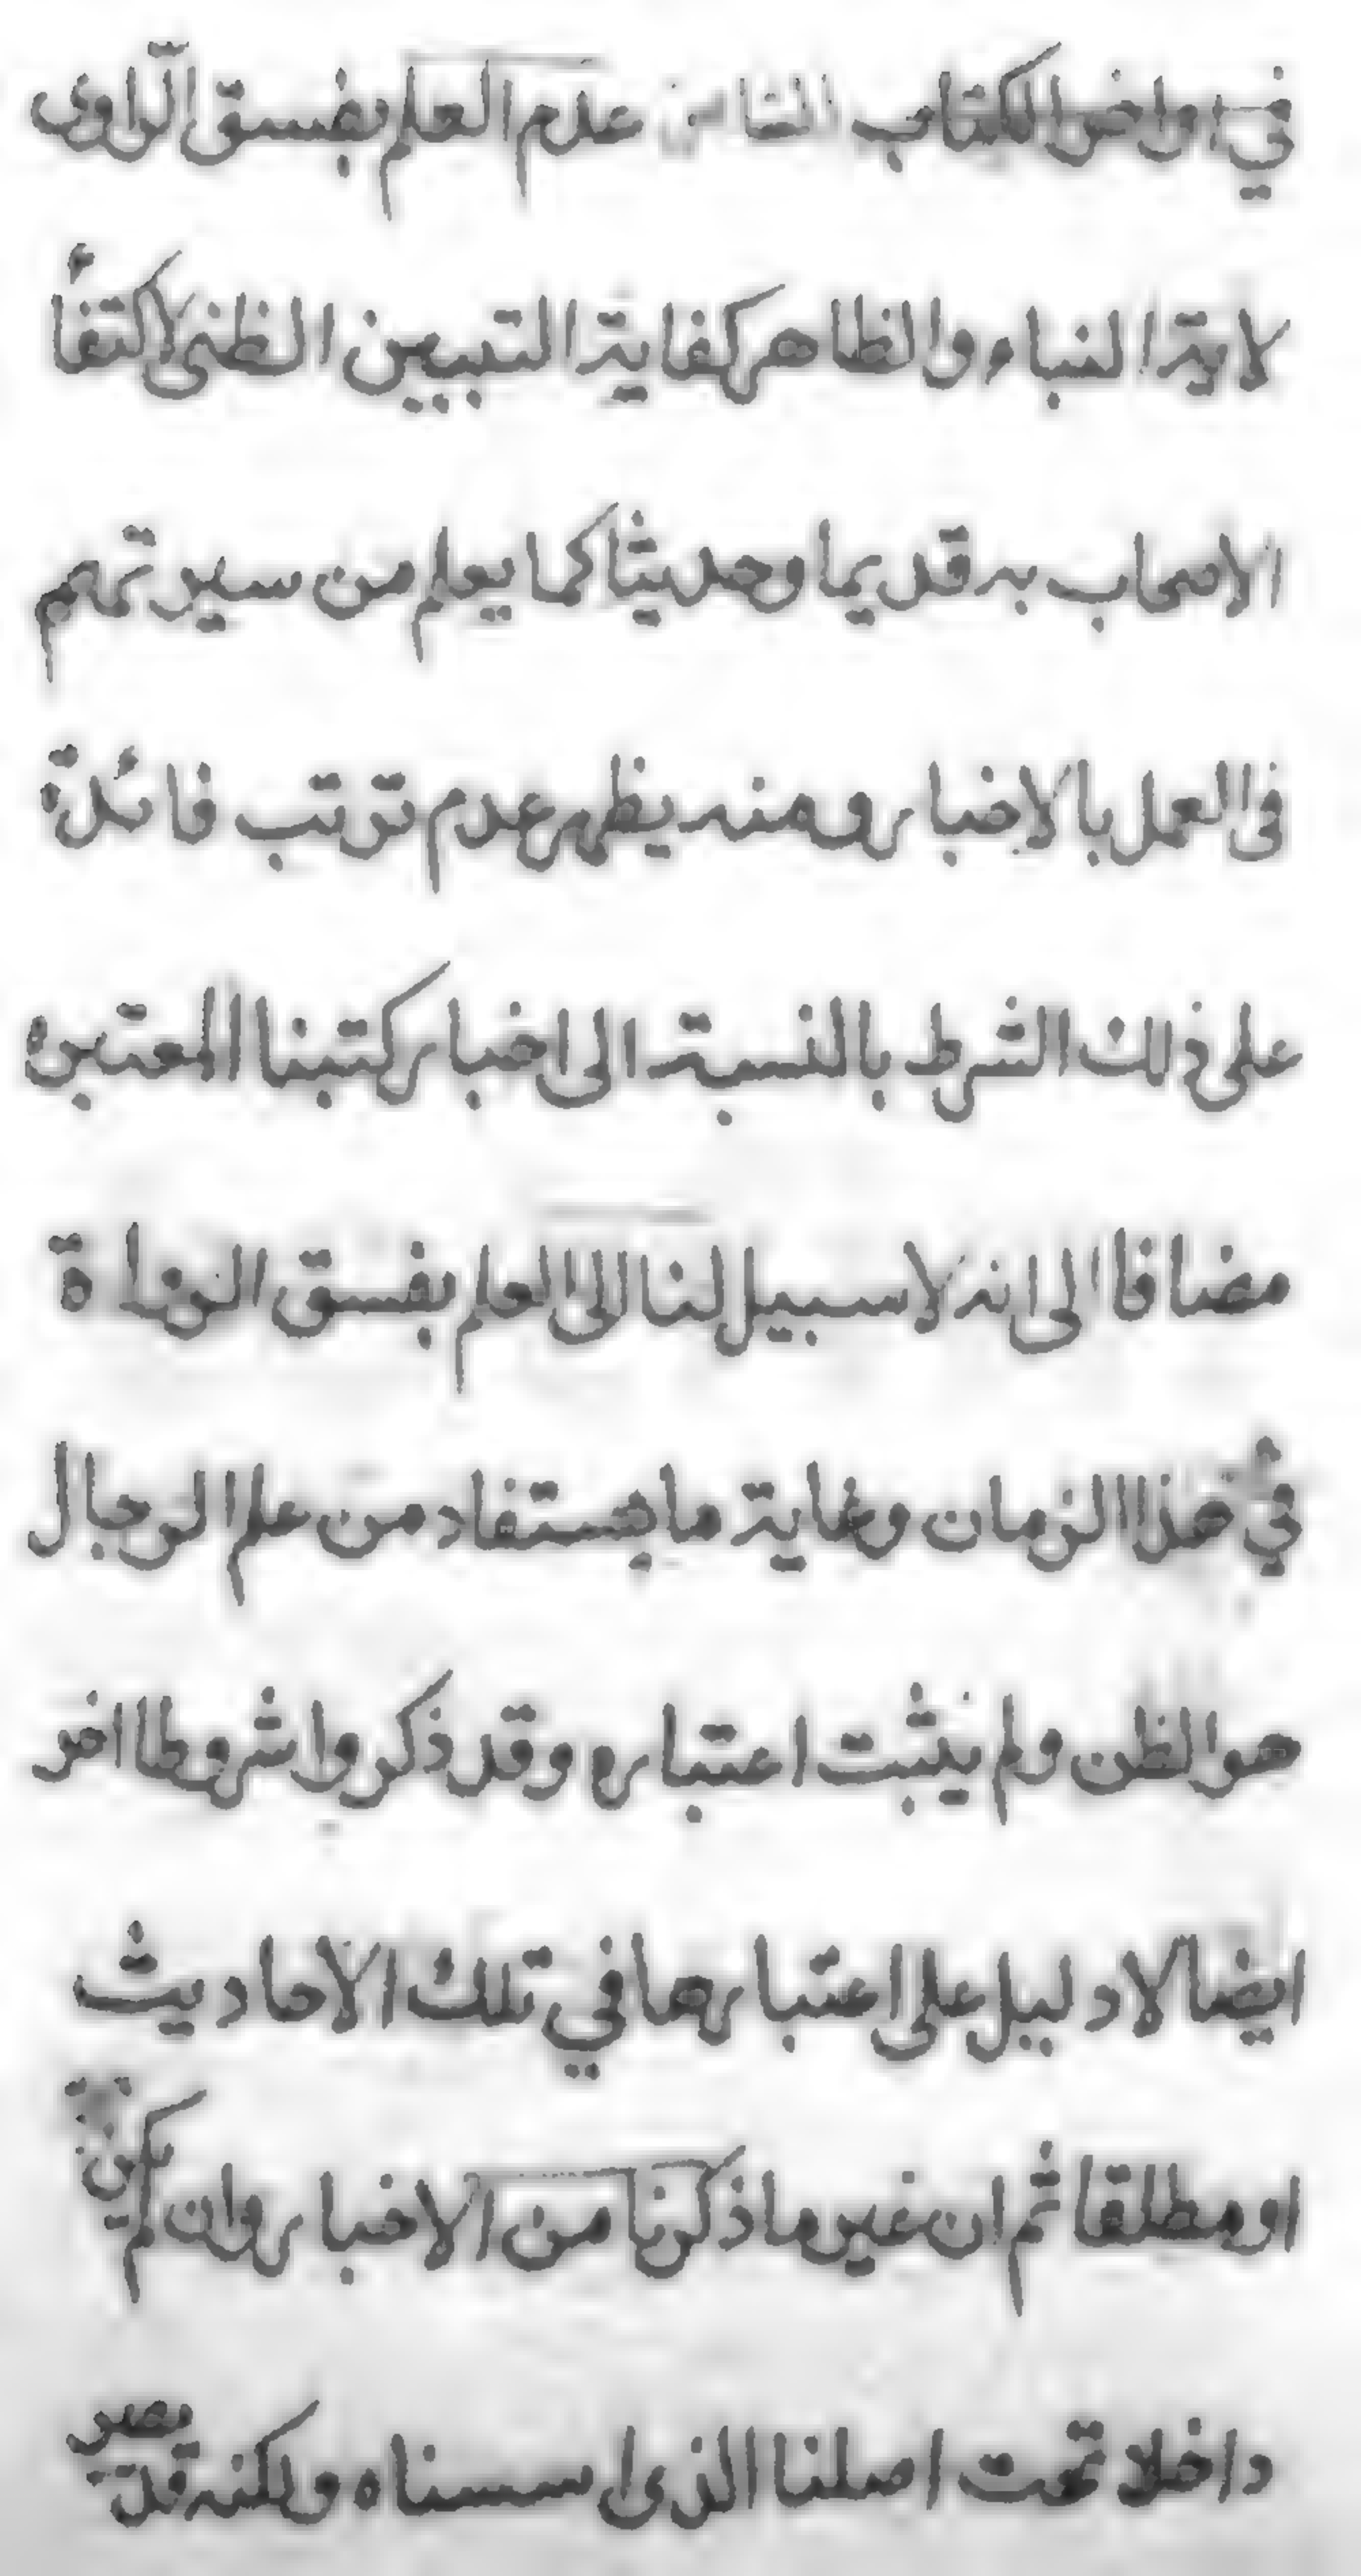 في اواخر الكتاب الثامن عدم العلم بفسق الرّاوى
لاية النباء والظاهر كفاية التبيين الظنى لاكتفاء
الاصحاب به قديما وحديثا كما يعلم من سيرتهم
فى العمل بالاخبار ومنه يظهر عدم ترتب فائدة
على ذلك الشرط بالنسبة الى اخبار كتبنا المعتبره
مضافا الى انه لا سبيل لنا الى العلم بفسق الرواة
في هذا الزمان وغاية ما يستفاد من علم الرجال
هو الظن ولم يثبت اعتباره وقد ذكروا شروطا اخر
ايضا لا دليل على اعتبارها في تلك الاحاديث
او مطلقا ثم ان غير ما ذكرنا من الاخبار وان لم يكن
داخلا تحت اصلنا الذى اسسناه ولكنه قد يصير